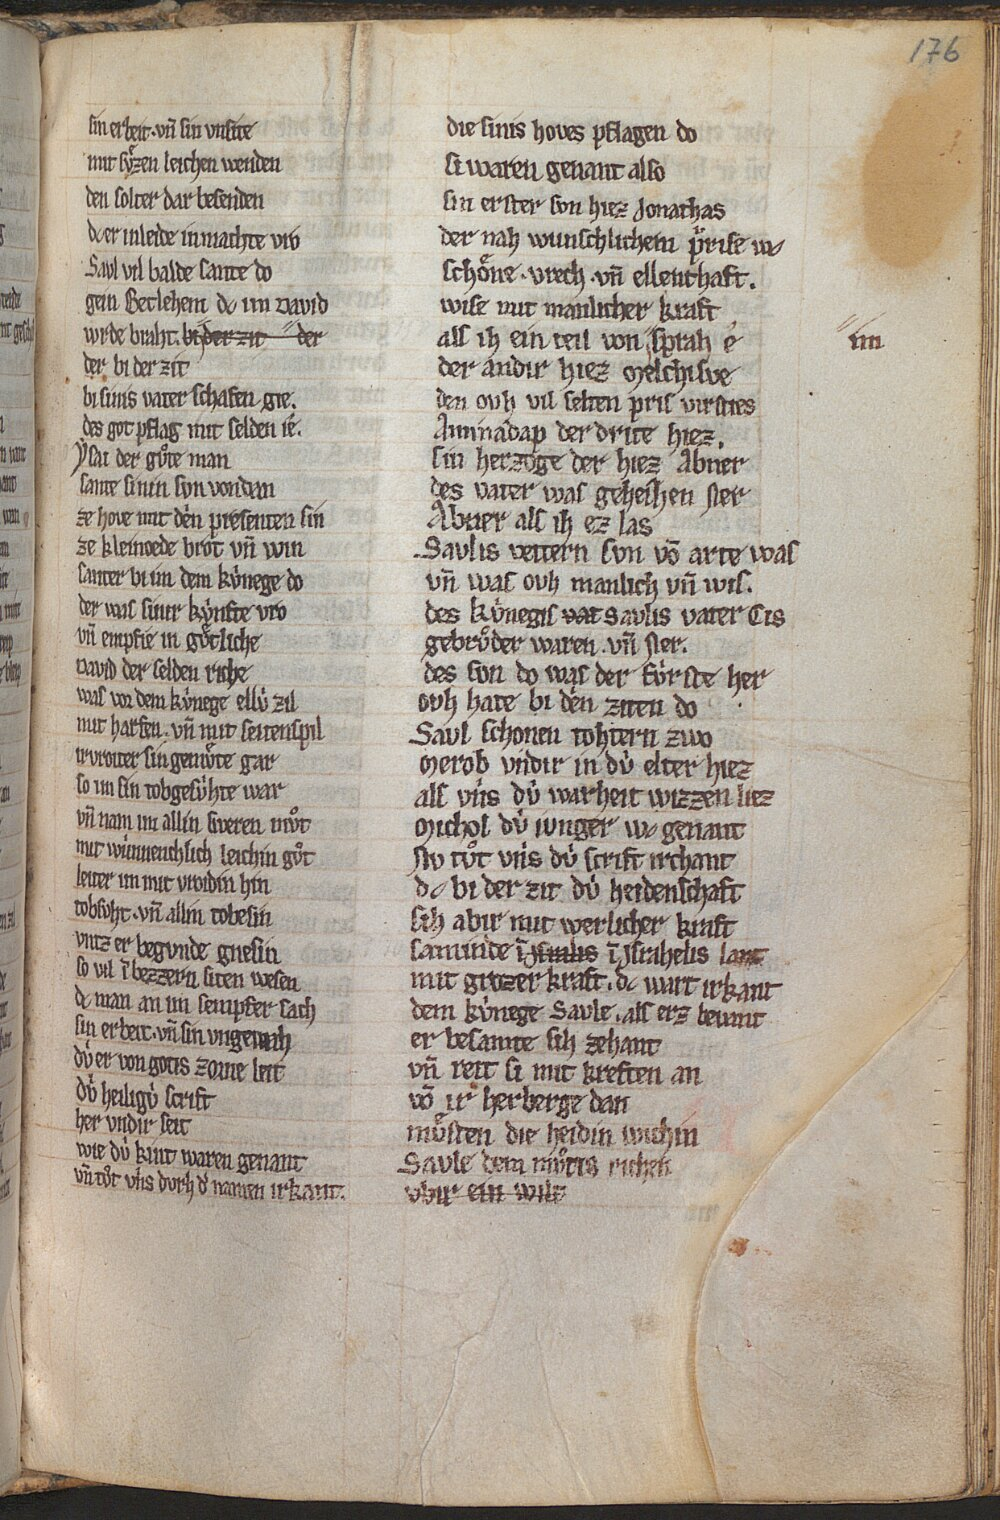 176
sin erbeit · vn̄ sin vnsite
mit sůzen leichen wenden
den solter dar besenden
dc er in leide in machte vro
Savl vil balde sante do
gein Betlehem dc im David
wrde braht. bi der zit der
der bi der zit
bi sinis vater schafen gie.
des got pflag mit selden ie.
Ysai der gůte man
sante sinin svn von dan
ze hove mit den presenten sin
ze kleinoede brot vn̄ win
santer bi im dem kv́nege do
der was sinir kv́nfte vro
vn̄ empfie in gůtliche
David der selden riche
was vor dem kv́nege ellv́ zil
mit harfen · vn̄ mit seitenspil
irvroiter sin gemv̊te gar
so im sin tobgesv́hte war
vn̄ nam im allin sweren mv̊t
mit wunnenchlich leichin gv̊t
leiter im mit vroidin hin
tobsvht · vn̄ allin tobesin
vntz er begvnde gnesin
so vil ī bezzern siten wesen
dc man an im sempfter sach
sin erbeit · vn̄ sin vngemah
dv́ er von gotis zorne leit
dv́ heiligv́ scrift
her vndir seit
wie dv́ kint waren genant
vn̄ tv̊t vns dvrh d' namen irkant.
die sinis hoves pflagen do
si waren genant also
sin erster son hiez Jonathas
der nah wunschlichem prise wc
schône · vrech · vn̄ ellenthaft.
wise mit manlicher kraft
als ih ein teil von " sprah e
im
der andir hiez Melchisve
den ovh vil selten pris virsties
Aminadap der drite hiez.
sin herzoge der hiez Abner
des vater was geheihen Ner
Abner als ih ez las
Savlis vettern svn vō arte was
vn̄ was ovh manlich vn̄ wis.
des kv́negis vat Savlis vater Cis
gebrv̊der waren · vn̄ Ner.
des son do was der fv́rste her
ovh hate bi den ziten do
Savl schonen tohtern zwo
Merob vndir in dv́ elter hiez
als vns dv́ warheit wizzen liez
Michol dv́ iunger wc genant
Nv tv̊t vns dv́ scrift irchant
dc bi der zit dv́ heidenschaft
sih abir mit werlicher kraft
saminde ī Jsralis ī Jsrahelis lant
mit grozer kraft. dc wart irkant
dem kv́nege Savle. als erz bevant
er besamte sih zehant
vn̄ reit si mit kreften an
vō ir herberge dan
mv̊sten die heidin wichin
Savle dem mv̊tis richen
vbir ein wilt